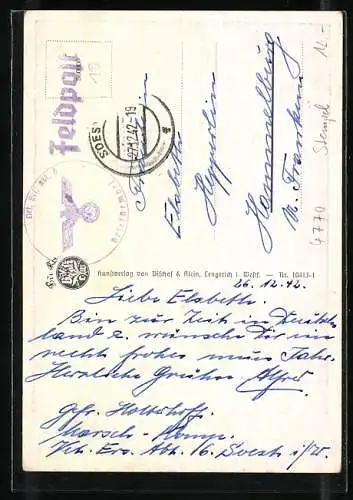 Feldpost
SOEST
27.12.42-19
Fräulein
Elsbeth
Hepperlin
Hammelburg
M. Franken
4770 Stempel 12.-
Kunstverlag von Bischof & Klein, Lengerich i. Westf. — Nr. 10413-1
26.12.42.
Liebe Elsbeth.
Bin zur Zeit in Deutsch-
land u. wünsche Dir ein
recht frohes neues Jahr.
Herzliche Grüße Alfred
Gefr.
Marsch-Komp.
Ers. Abt. 16. Soest i/W.